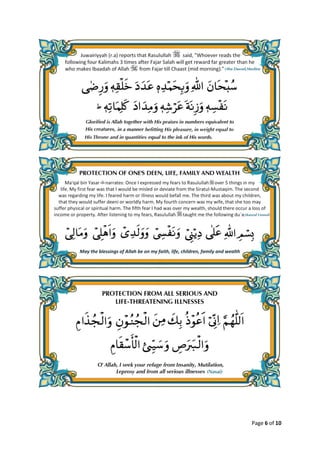 Juwairiyyah (r.a) reports that Rasulullah ﷺ said, "Whoever reads the
following four Kalimahs 3 times after Fajar Salah will get reward far greater than he
who makes Ibaadah of Allah ﷻ from Fajar till Chaast (mid morning)."
سُبْحَانَ اللهِ وَبِحَمْدِهٖ عَدَدَ خَلْقِهٖ وَرِضٰى
نَفْسِهٖ وَزِنَةَ عَرْشِهٖ وَمِدَادَ كَلِمَاتِهٖ ط
Glorified is Allah together with His praises in numbers equivalent to
His creatures, in a manner befitting His pleasure, in weight equal to
His Throne and in quantities equal to the ink of His words.
PROTECTION OF ONE'S DEEN, LIFE, FAMILY AND WEALTH
Ma'qal bin Yasar narrates: Once I expressed my fears to Rasulullah ﷺ over 5 things in my
life. My first fear was that I would be misled or deviate from the Siratul-Mustaqim. The second
was regarding my life. I feared harm or illness would befall me. The third was about my children,
that they would suffer deeni or worldly harm. My fourth concern was my wife, that she too may
suffer physical or spiritual harm. The fifth fear I had was over my wealth, should there occur a loss of
income or property. After listening to my fears, Rasulullah ﷺ taught me the following du'a
بِسْمِ اللهِ عَلٰى دِيْنِيْ وَنَفْسِيْ وَوَلَدِيْ وَاَهْلِيْ وَمَالِيْ
May the blessings of Allah be on my faith, life, children, family and wealth
PROTECTION FROM ALL SERIOUS AND
LIFE-THREATENING ILLNESSES
اَللّٰهُمَّ اِنِّيْ اَعُوْذُ بِكَ مِنَ الْجُنُوْنِ وَالْجُذَامِ
وَالْبَرَصِ وَسَيِّئِ الْأَسْقَامِ
O' Allah, I seek your refuge from Insanity, Mutilation,
Leprosy and from all serious illnesses (Nasai)
Page 6 of 10